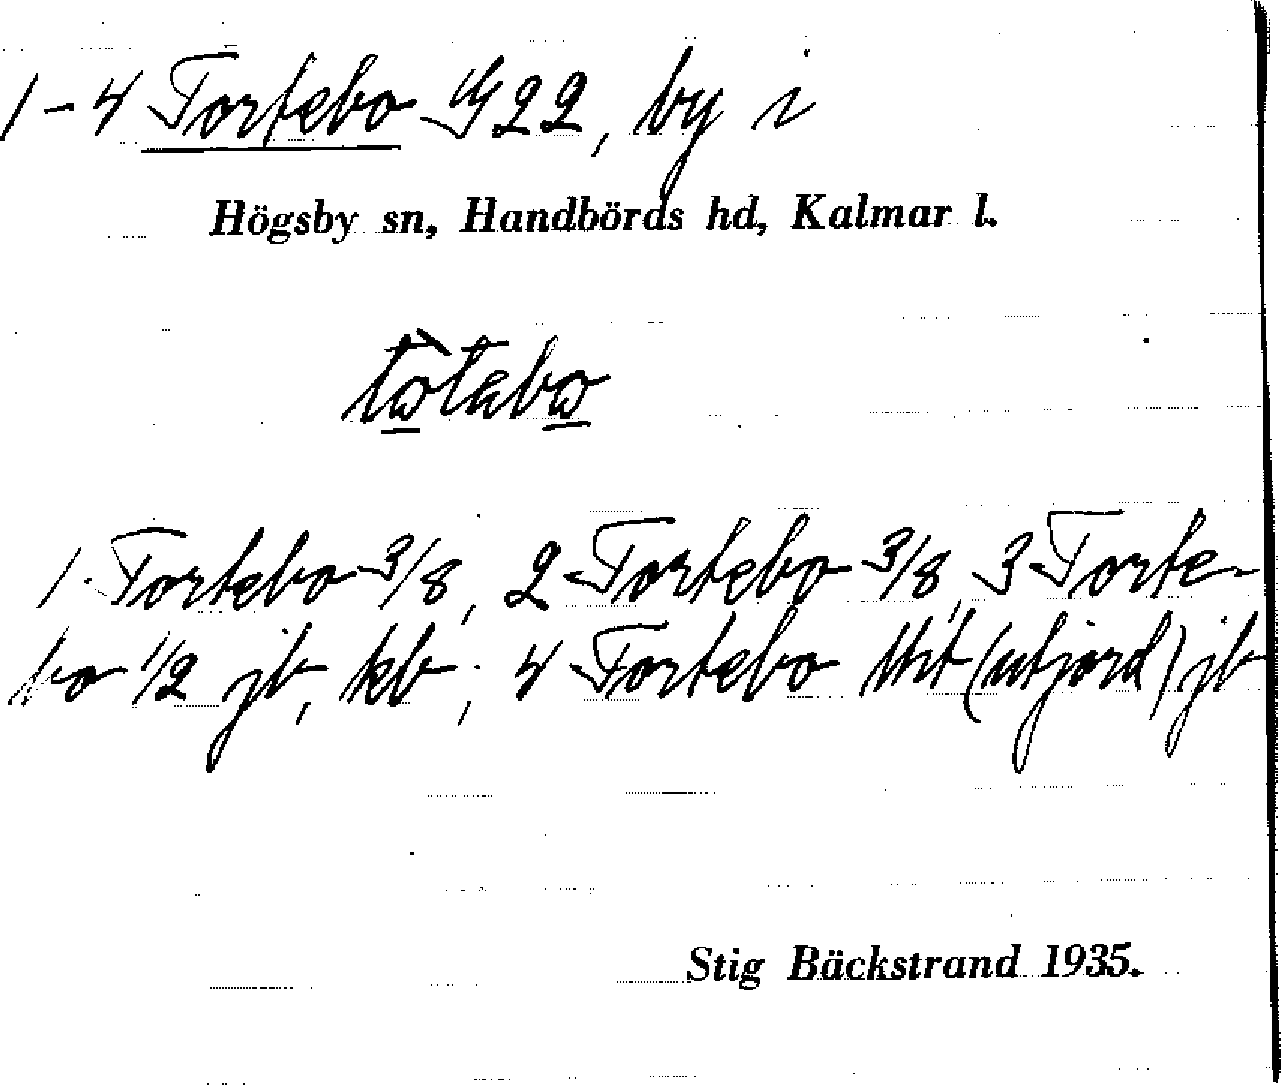 1-4 Tortebo G22, by i
Högsby sn, Handbörds hd, Kalmar l.
tòtebo
1 Tortebo 3/8, 2 Tortebo 3/8, 3 Torte-
bo 1/2 jb, kb; 4 Tortebo (utjord) jb
Stig Bäckstrand 1935.